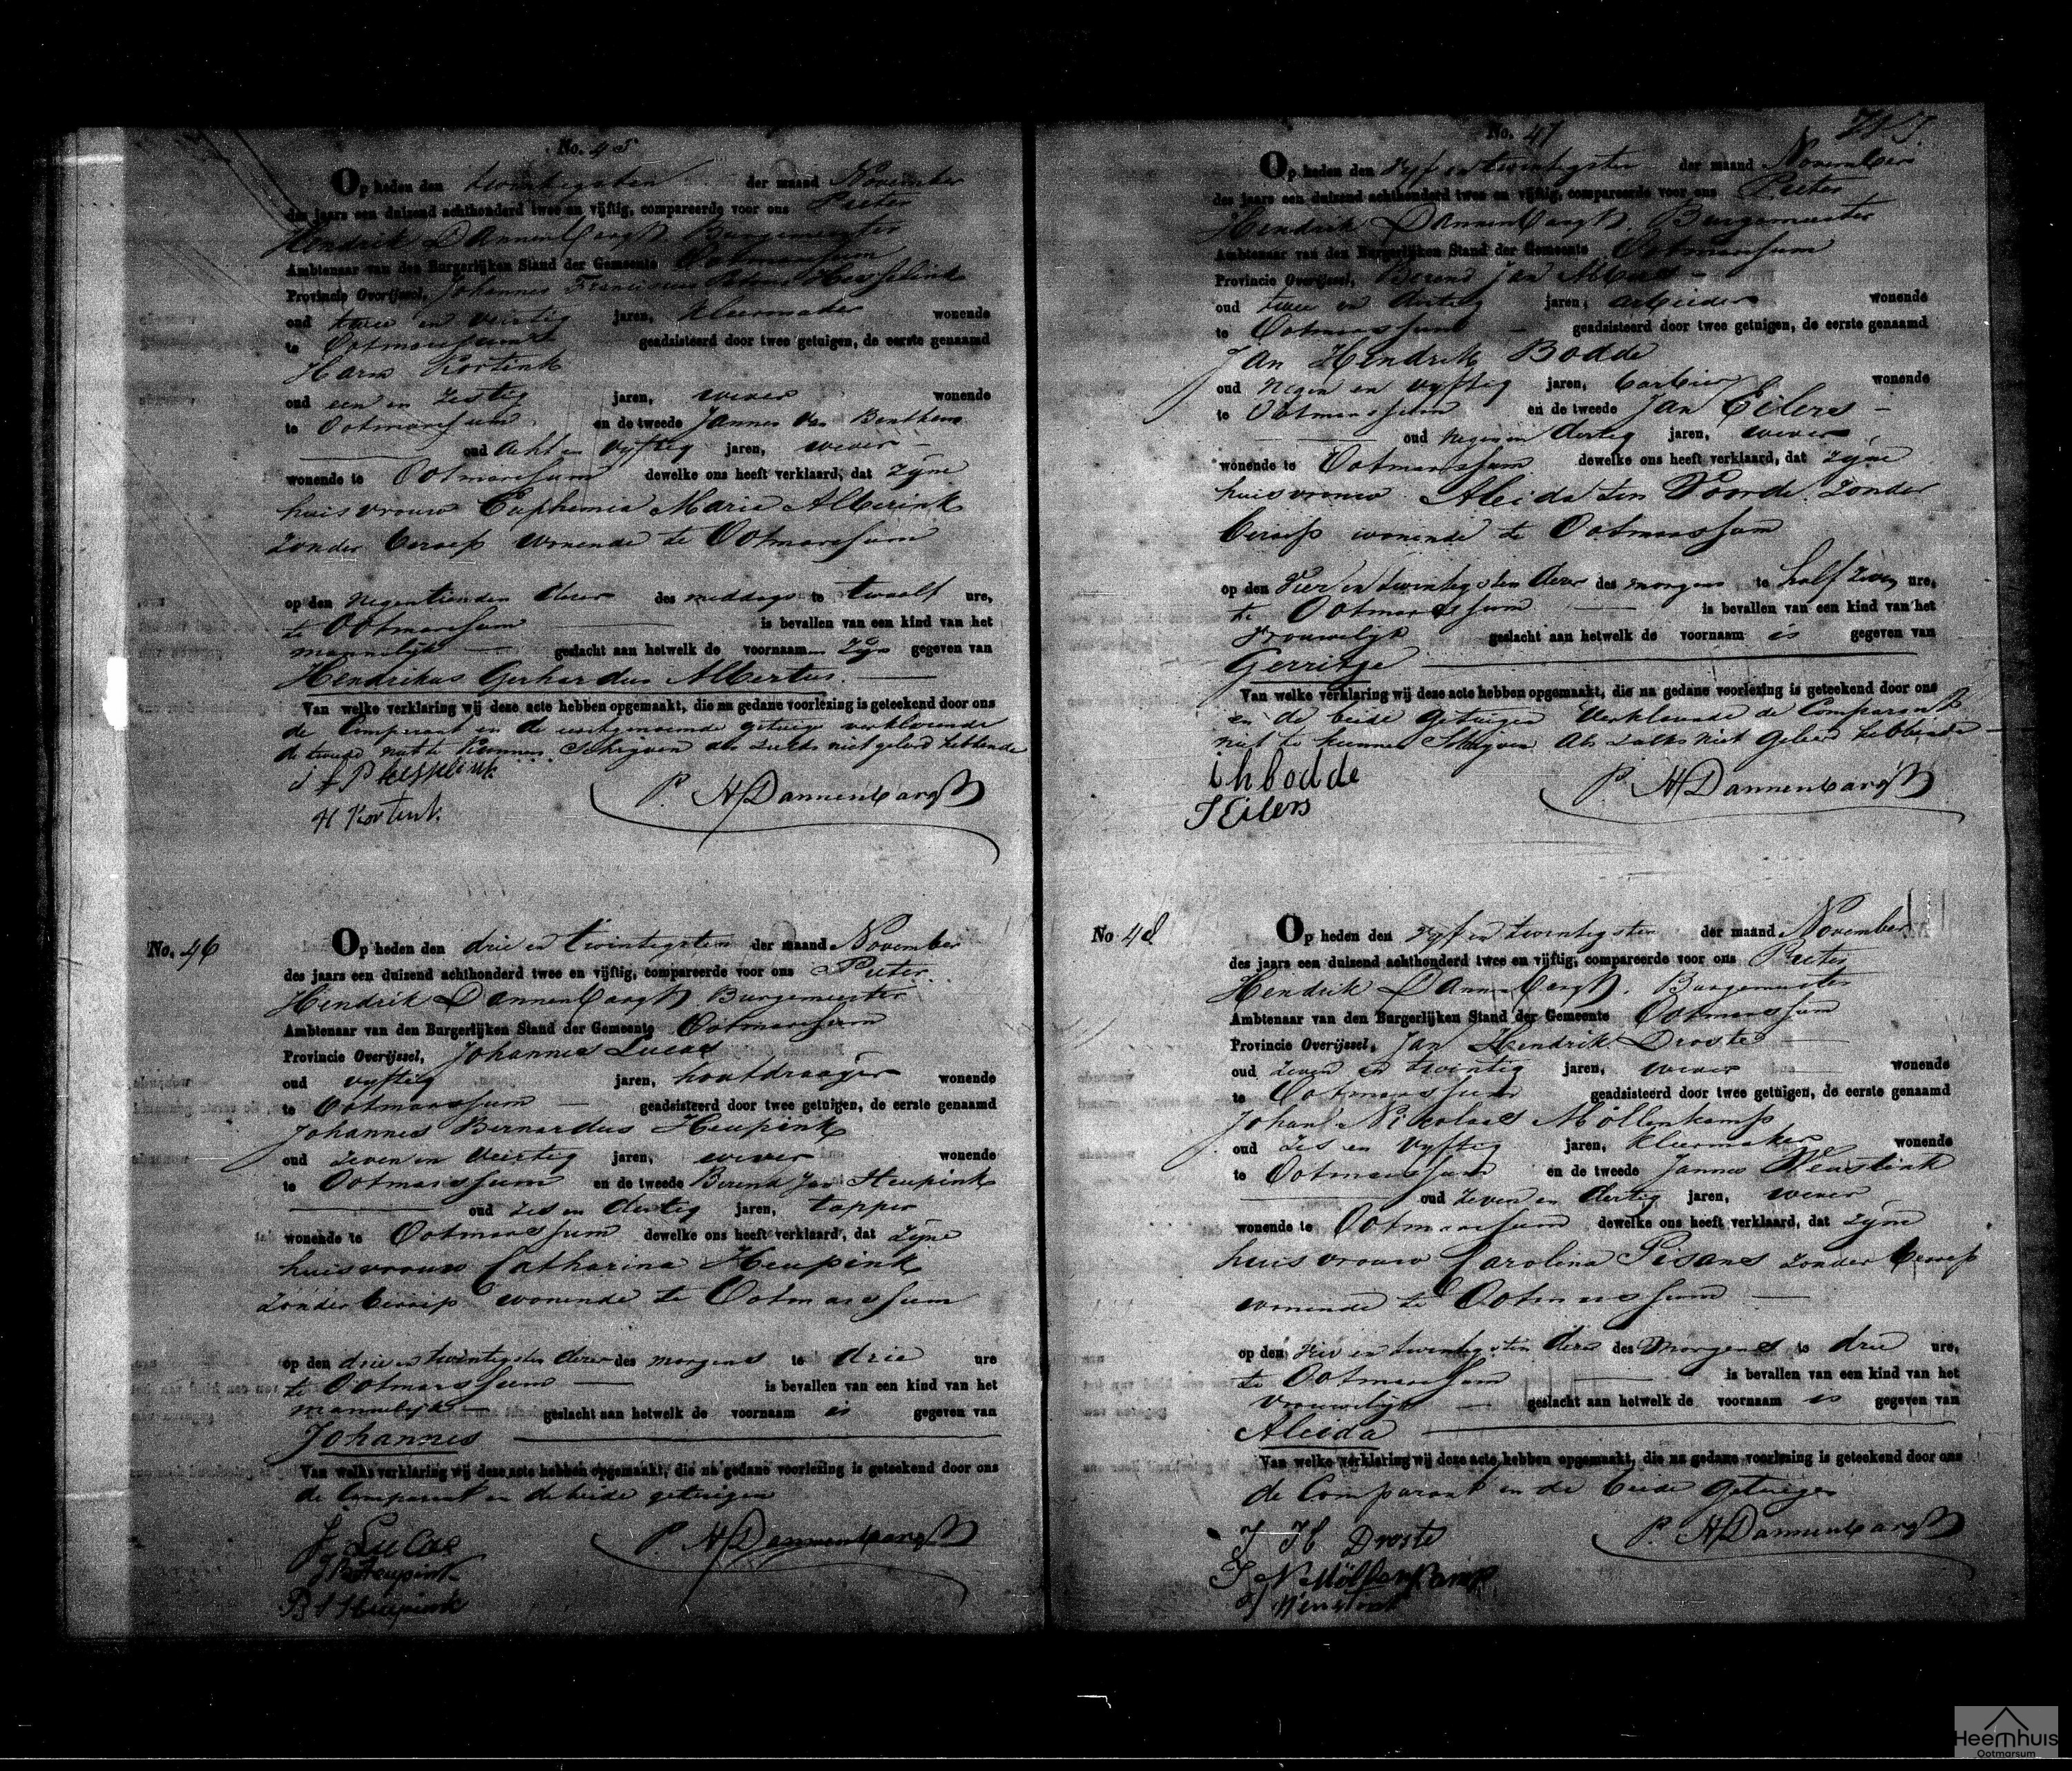 No. 45
Op heden den twintigsten der maand November
des jaars een duizend achthonderd twee en vijftig, compareerde voor ons Pieter
Hendrik Dannenbargh Burgemeester
Ambtenaar van den Burgerlijken Stand der Gemeente Ootmarssum
Provincie Overijssel, Johannes Franciscus
oud twee en veertig jaren, kleermaker wonende
te Ootmarssum geadsisteerd door twee getuigen, de eerste genaamd
Harm Kortink
oud een en zestig jaren, wever wonende
te Ootmarssum en de tweede Jannes van Benthem
oud acht en vyftig jaren, wever
wonende te Ootmarssum dewelke ons heeft verklaard, dat zyne
huisvrouw Euphemia Maria Alberink
zonder beroep wonende te Ootmarssum
op den negentienden dezer des middags te twaalf ure,
te Ootmarssum is bevallen van een kind van het
mannelyk geslacht aan hetwelk de voornaam zyn gegeven van
Hendrikus Gerhardus Albertus.
Van welke verklaring wij deze acte hebben opgemaakt, die na gedane voorlezing is geteekend door ons
de Comparant en de eerstgenoemde getuige verklarende
de tweede niet te kunnen schryven als zulks niet geleerd hebbende
H Kortink
P. H Dannenbargh
No. 46
Op heden den drie en twintigsten der maand November
des jaars een duizend achthonderd twee en vijftig, compareerde voor ons Pieter
Hendrik Dannenbargh Burgemeester
Ambtenaar van den Burgerlijken Stand der Gemeente Ootmarssum
Provincie Overijssel, Johannes Lucas
oud vyftig jaren, houtdraayer wonende
te Ootmarssum geadsisteerd door twee getuigen, de eerste genaamd
Johannes Bernardus Heupink
oud zeven en veertig jaren, wever wonende
te Ootmarssum en de tweede Berend Jan Heupink
oud zes en dertig jaren, tapper
wonende te Ootmarssum dewelke ons heeft verklaard, dat zyne
huisvrouw Catharina Heupink
zonder beroep wonende te Ootmarssum
op den drie en twintigsten dezer des morgens te drie ure
te Ootmarssum is bevallen van een kind van het
mannelyk geslacht aan hetwelk de voornaam is gegeven van
Johannes
Van welke verklaring wij deze acte hebben opgemaakt, die na gedane voorlezing is geteekend door ons
de Comparant en de beide getuigen
J Lucas
J B Heupink
B J Heupink
P. H Dannenbargh
No. 47
Op heden den vyf en twintigsten der maand November
des jaars een duizend achthonderd twee en vijftig, compareerde voor ons Pieter
Hendrik Dannenbargh. Burgemeester
Ambtenaar van den Burgerlijken Stand der Gemeente Ootmarssum
Provincie Overijssel, Berend Jan Albers
oud twee en dertig jaren, arbeider wonende
te Ootmarssum geadsisteerd door twee getuigen, de eerste genaamd
Jan Hendrik Bodde
oud negen en vyftig jaren, barbier wonende
te Ootmarssum en de tweede Jan Eilers
oud negen en dertig jaren, wever
wonende te Ootmarssum dewelke ons heeft verklaard, dat zyne
huisvrouw Aleida ten Voorde zonder
beroep wonende te Ootmarssum
op den vier en twintigsten dezer des morgens te half zeven ure,
te Ootmarssum is bevallen van een kind van het
vrouwelyk geslacht aan hetwelk de voornaam is gegeven van
Gerritje
Van welke verklaring wij deze acte hebben opgemaakt, die na gedane voorlezing is geteekend door ons
en de beide getuigen verklarende de Comparant
niet te kunnen schryven als zulks niet geleerd hebbende
i h bodde
J Eilers
P. H Dannenbargh
No 48
Op heden den vyf en twintigsten der maand November
des jaars een duizend achthonderd twee en vijftig, compareerde voor ons Pieter
Hendrik Dannenbargh. Burgemeester
Ambtenaar van den Burgerlijken Stand der Gemeente Ootmarssum
Provincie Overijssel, Jan Hendrik Droste
oud zeven en twintig jaren, wever wonende
te Ootmarssum geadsisteerd door twee getuigen, de eerste genaamd
Johan Nicolaas Möllenkamp
oud zes en vyftig jaren, kleermaker wonende
te Ootmarssum en de tweede Jannes
oud zeven en dertig jaren, wever
wonende te Ootmarssum dewelke ons heeft verklaard, dat zyne
huisvrouw Carolina Pisans zonder beroep
wonende te Ootmarssum
op den vier en twintigsten dezer des morgens te drie ure,
te Ootmarssum is bevallen van een kind van het
vrouwelyk geslacht aan hetwelk de voornaam is gegeven van
Aleida
Van welke verklaring wij deze acte hebben opgemaakt, die na gedane voorlezing is geteekend door ons
de Comparant en de beide getuigen
J H Droste
J N Möllenkamp
P. H Dannenbargh
Heemhuis
Ootmarsum